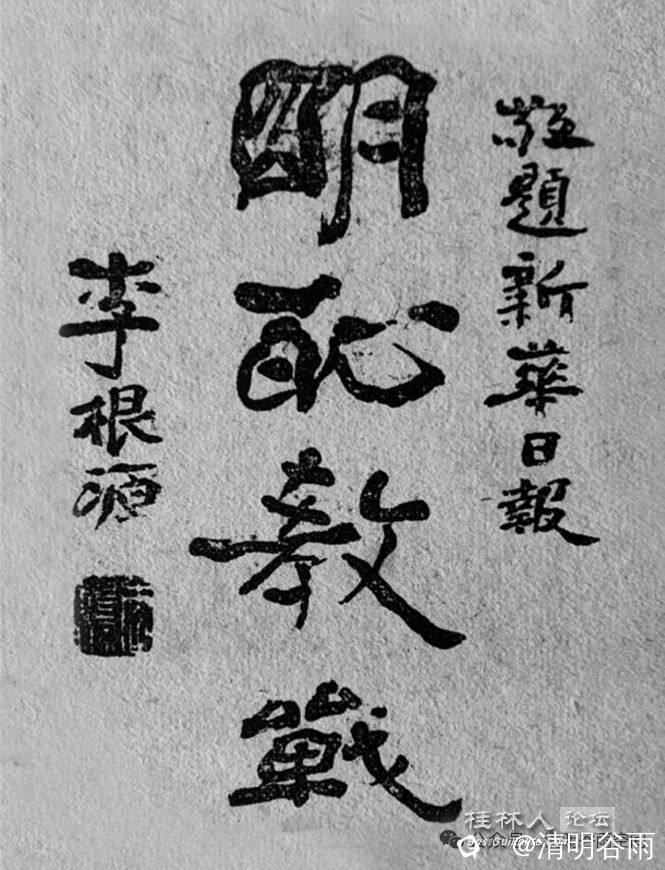 敬題新華日報
明恥教戰
李根源
桂林人论坛
@清明谷雨